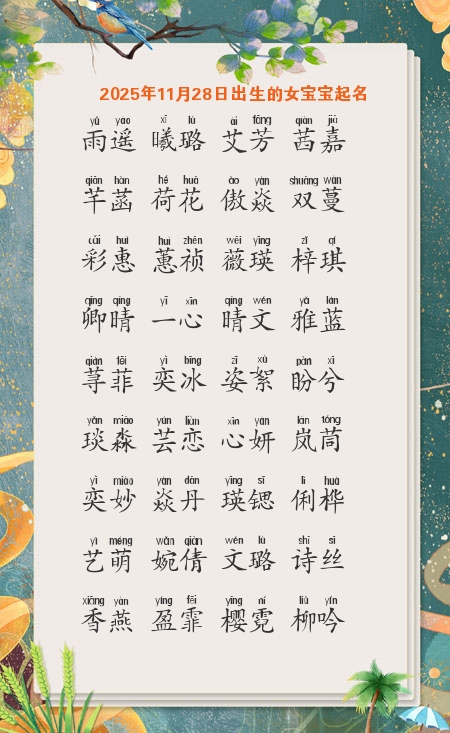 2025年11月28日出生的女宝宝起名
yǔ yáo xī lù ài fāng qiàn jiā
雨遥 曦璐 艾芳 茜嘉
qiān hàn hé huā ào yàn shuāng wàn
芊菡 荷花 傲焱 双蔓
cǎi huì huì zhēn wēi yīng zǐ qí
彩惠 蕙祯 薇瑛 梓琪
qīng qíng yī xīn qíng wén yǎ lán
卿晴 一心 晴文 雅蓝
qián fēi yì bīng zī xù pàn xī
荨菲 奕冰 姿絮 盼兮
yǎn miǎo yún liàn xīn yán lán tóng
琰淼 芸恋 心妍 岚茼
yì miào yàn dān yīng sī lì huà
奕妙 焱丹 瑛锶 俐桦
yì méng wǎn qiàn wén lù shī sī
艺萌 婉倩 文璐 诗丝
xiāng yàn yíng fēi yīng ní liǔ yín
香燕 盈霏 樱霓 柳吟